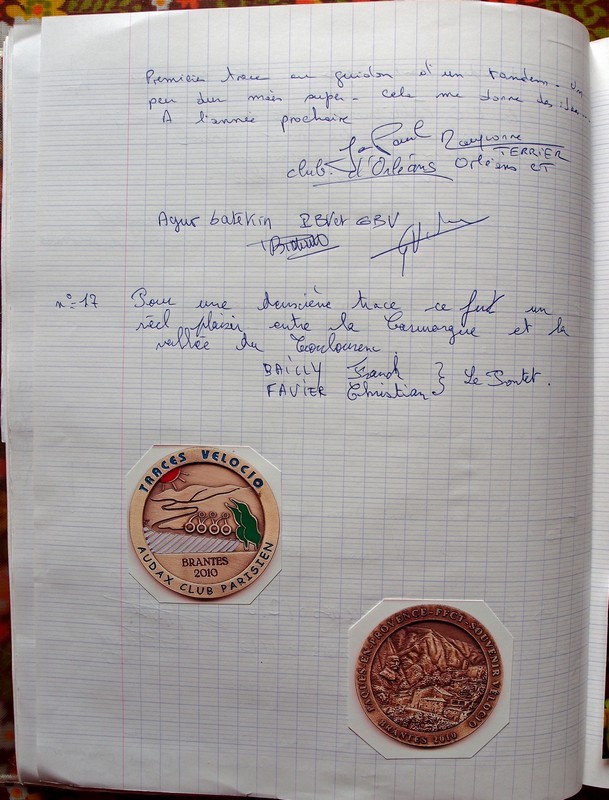 Première trace au guidon d'un tandem. Un
peu dur mais super. Cela me donne des idées...
A l'année prochaine
Paul
TERRIER
club d'Orléans Orléans CT
Agur baterin RBV et GBV
n° 17 Pour une deuxième trace ce fut un
réel plaisir entre la Camargue et la
vallée du Toulourenc.
BAILLY Franck
FAVIER Christian } Le Pontet.
TRACES VELOCIO
BRANTES
2010
AUDAX CLUB PARISIEN
PAQUES-EN-PROVENCE-FFCT-SOUVENIR VELOCIO
BRANTES 2010